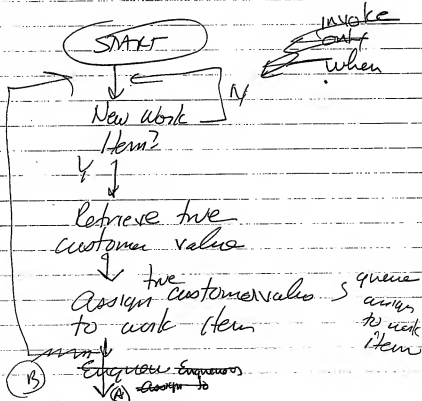 START
invoke
only
when
N
New work
Item?
Y
Retrieve true
customer value
true
assign customer value
to work item
queue
assign
to work
item
B
Enqueue
assign to
A